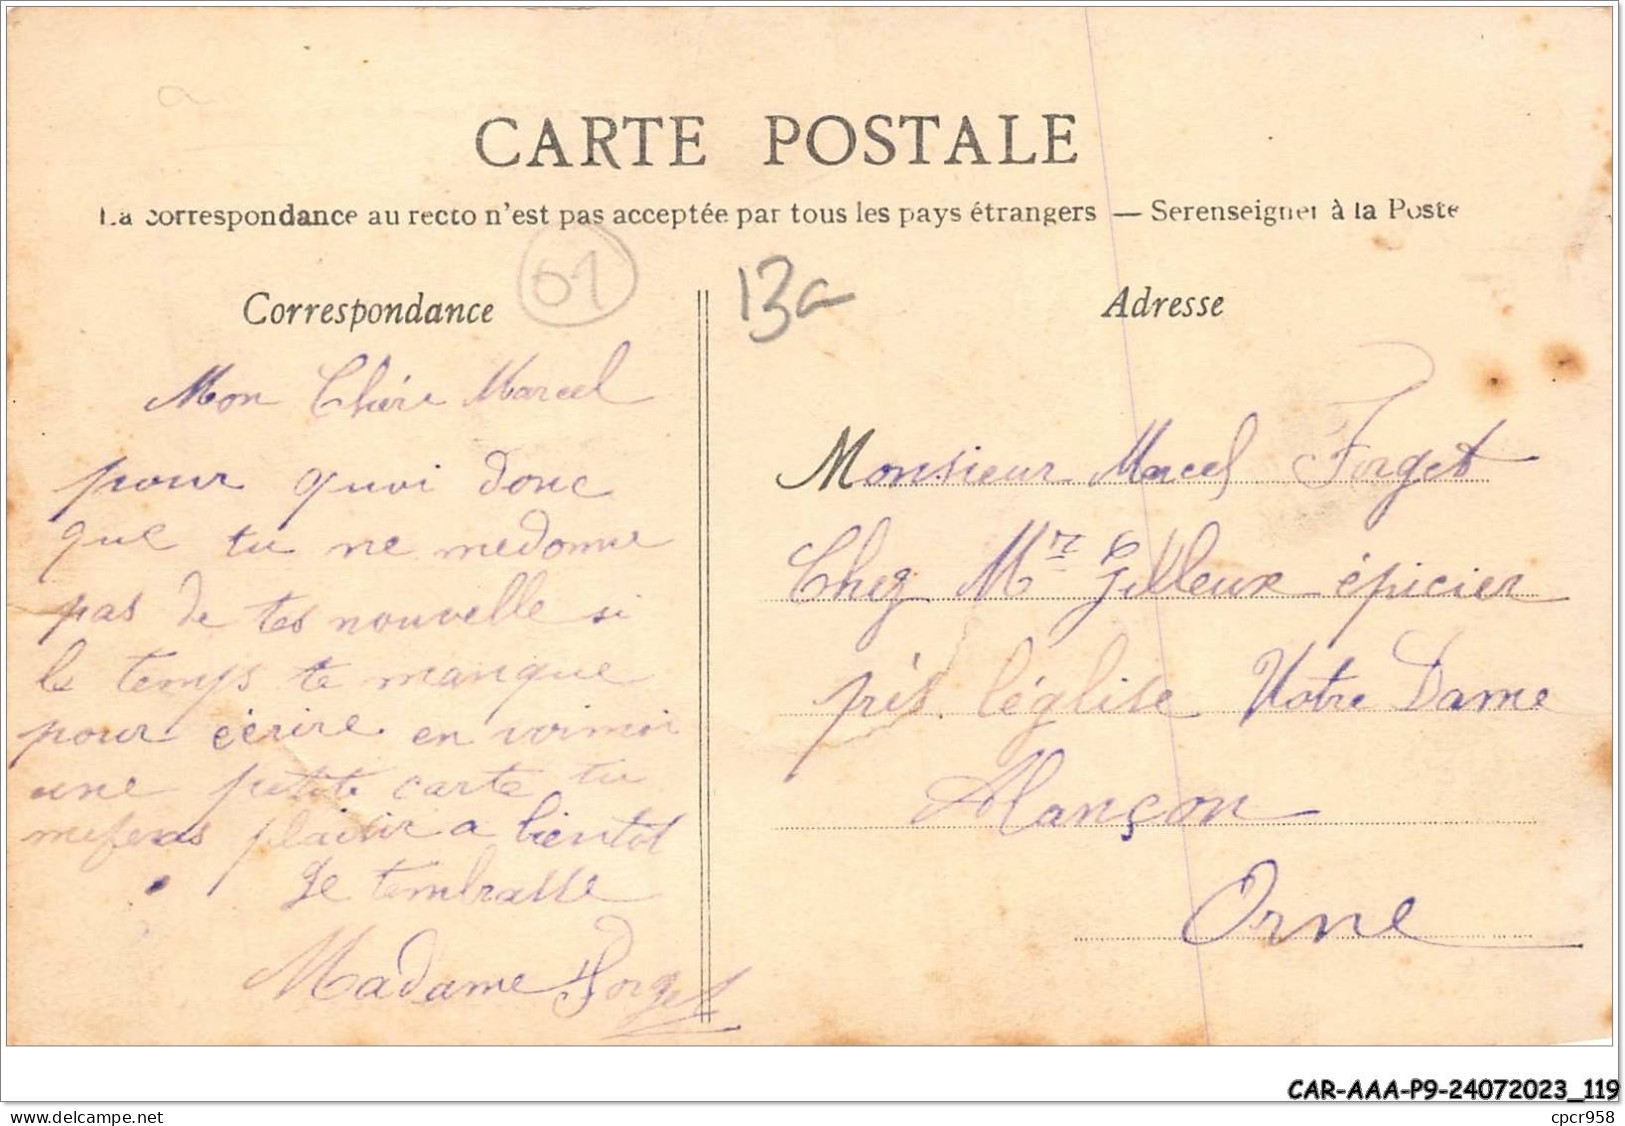 CARTE POSTALE
La correspondance au recto n'est pas acceptée par tous les pays étrangers — Se renseigner à la Poste
61
13a
Correspondance
Mon Chére Marcel
pour quoi donc
que tu ne medonne
pas de tes nouvelle si
le temps te manque
pour éérire en voi moi
une petite carte tu
meferas plaisir a bientot
Je tembrasse
Madame Forget
Adresse
Monsieur Marcel Forget
Chez Mr Gilleux épicier
près l'église Notre Dame
Alançon
Orne
CAR-AAA-P9-24072023_119
www.delcampe.net
cpcr958